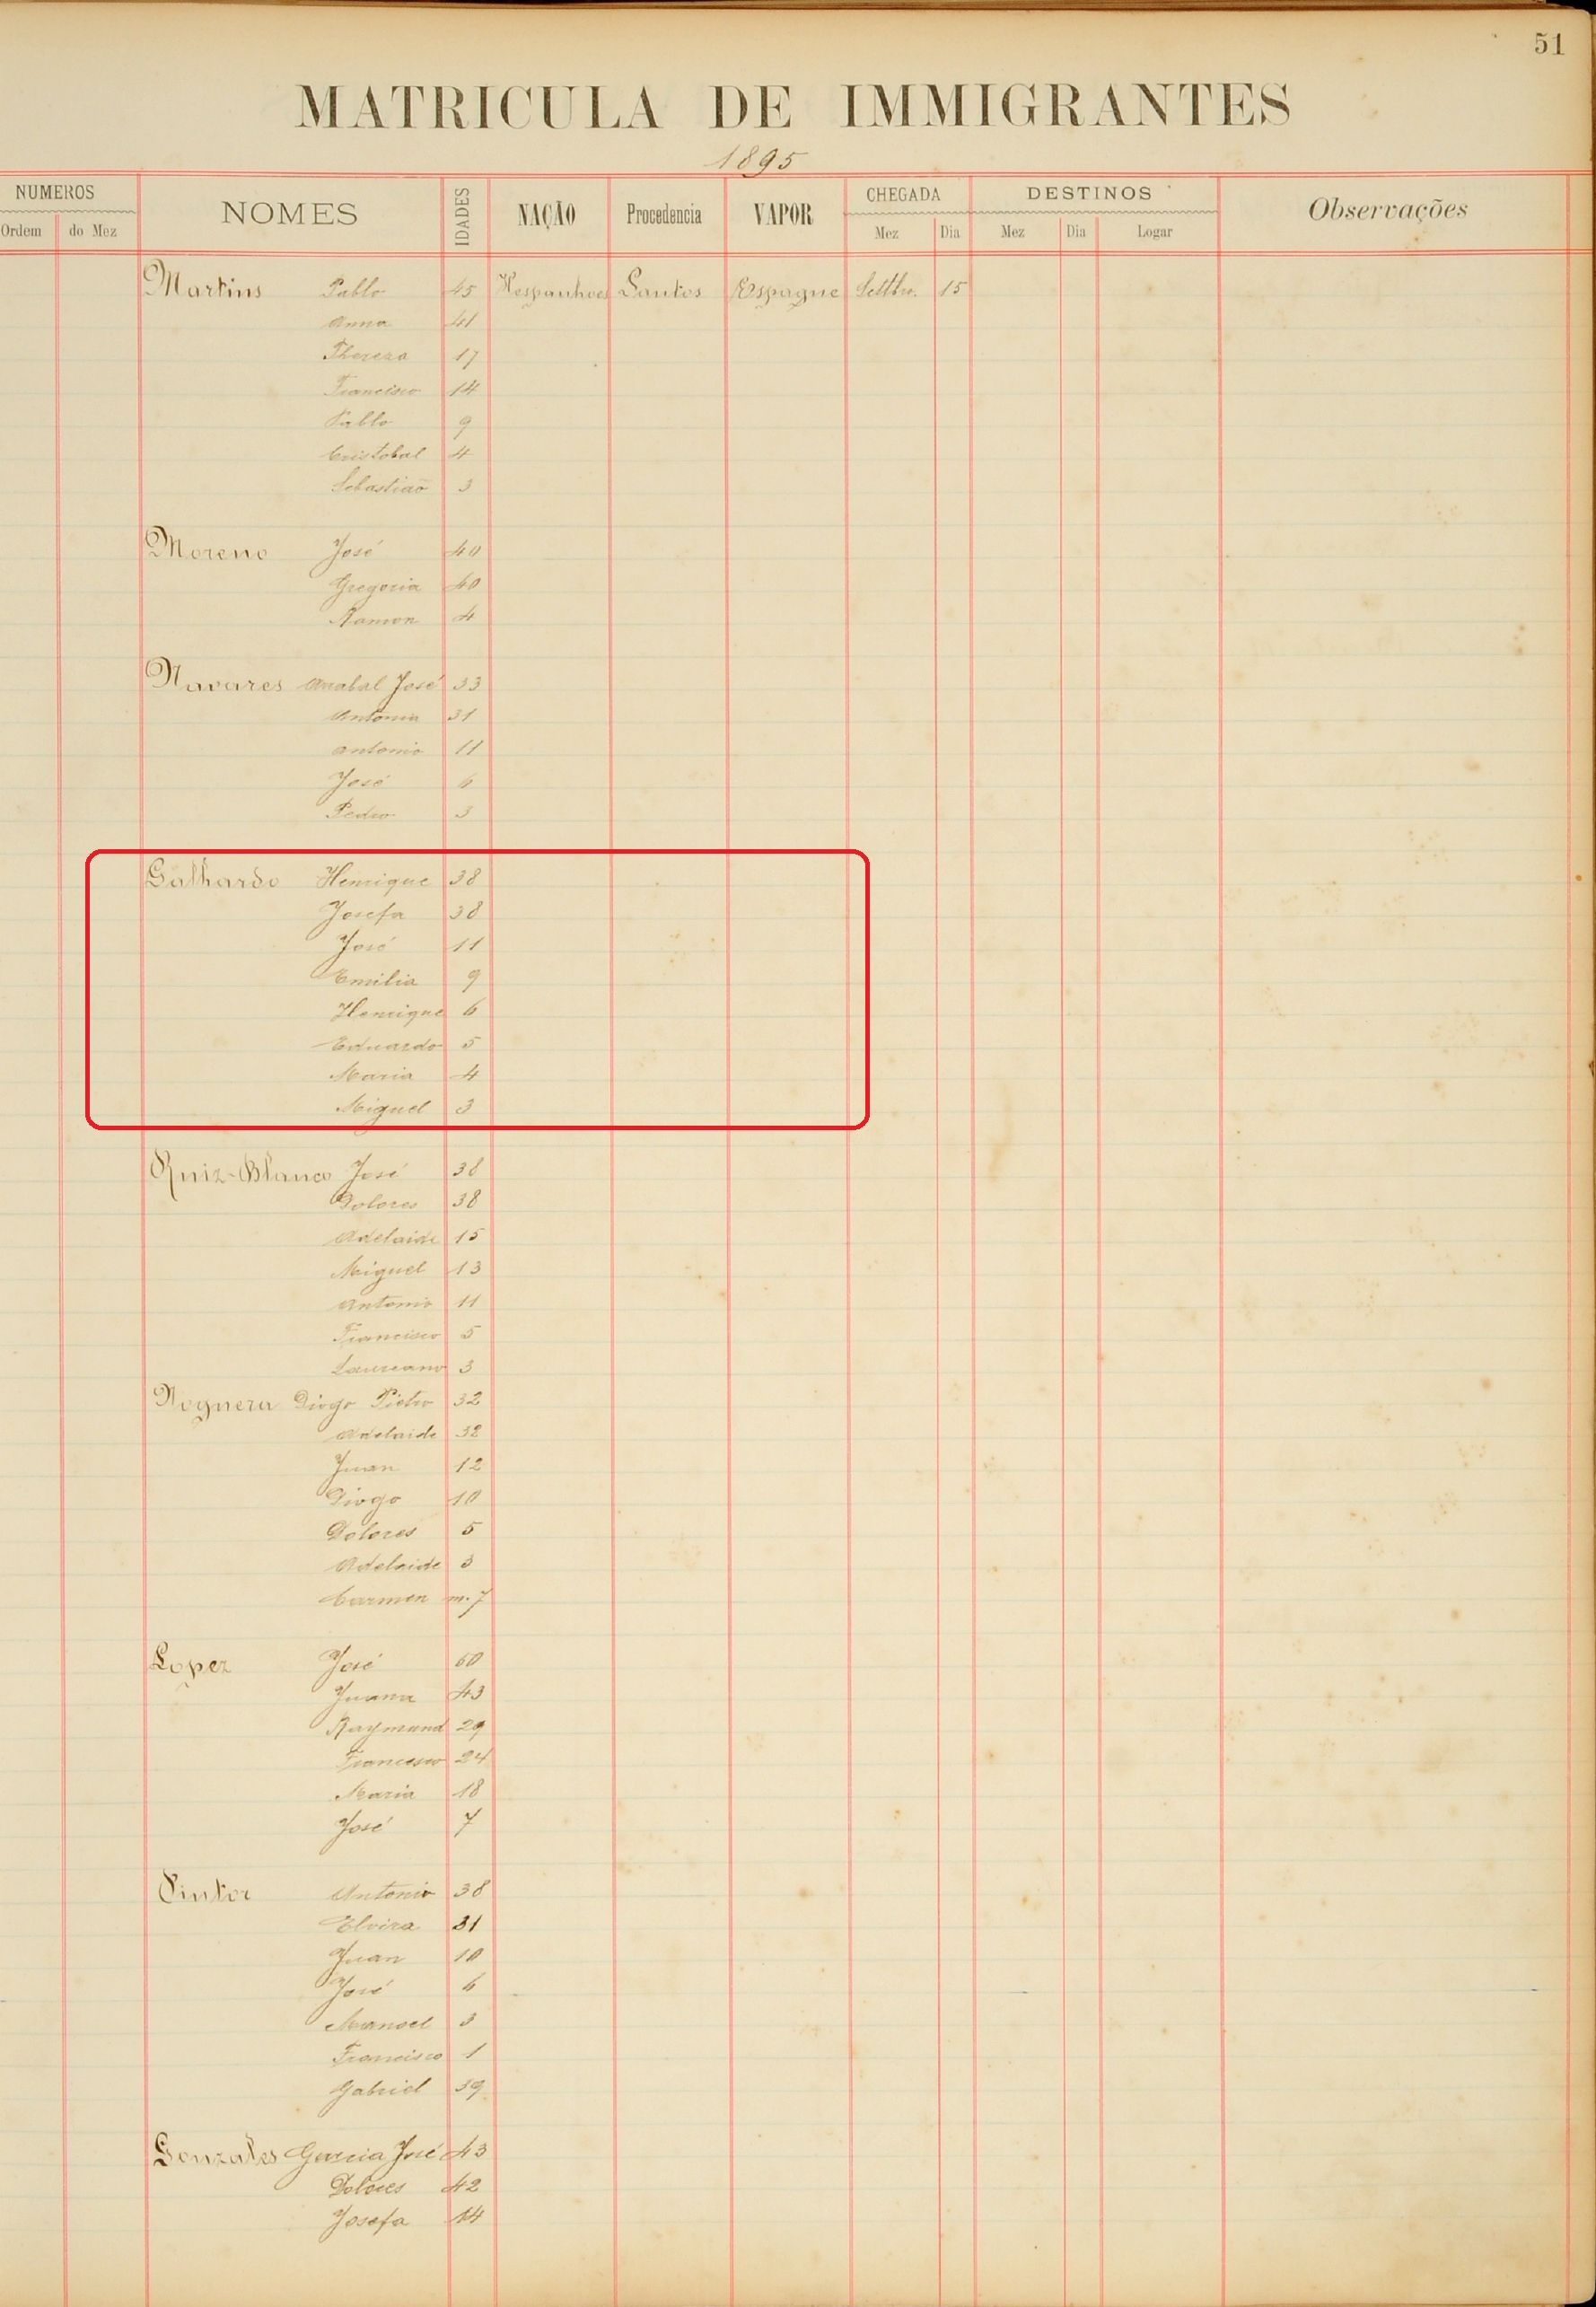 51
MATRICULA DE IMMIGRANTES
1895
NUMEROS NOMES IDADES NAÇÃO Procedencia VAPOR CHEGADA DESTINOS Observações
Ordem do Mez Mez Dia Mez Dia Logar
Martins Pablo 45 Hespanhoes Santos Espagne Settbr. 15
Anna 41
Thereza 17
Francisco 14
Pablo 9
Cristobal 4
Sebastiaõ 3
Moreno José 40
Gregoria 40
Ramon 4
Navares Anabal José 33
Antonia 31
Antonio 11
José 6
Pedro 3
Galhardo Henrique 38
Josefa 38
José 11
Emilia 9
Henrique 6
Eduardo 5
Maria 4
Miguel 3
Ruiz-Blanco José 38
Dolores 38
Adelaide 15
Miguel 13
Antonio 11
Francisco 5
Laureano 3
Noguera Diogo Pietro 32
Adelaide 32
Juan 12
Diogo 10
Dolores 5
Adelaide 3
Carmen m. 7
Lopez José 60
Juana 43
Raymund 29
Francesco 24
Maria 18
José 7
Pintor Antonio 38
Elvira 31
Juan 10
José 6
Manoel 3
Francisco 1
Gabriel 39
Gonzales Garcia José 43
Dolores 42
Josefa 14